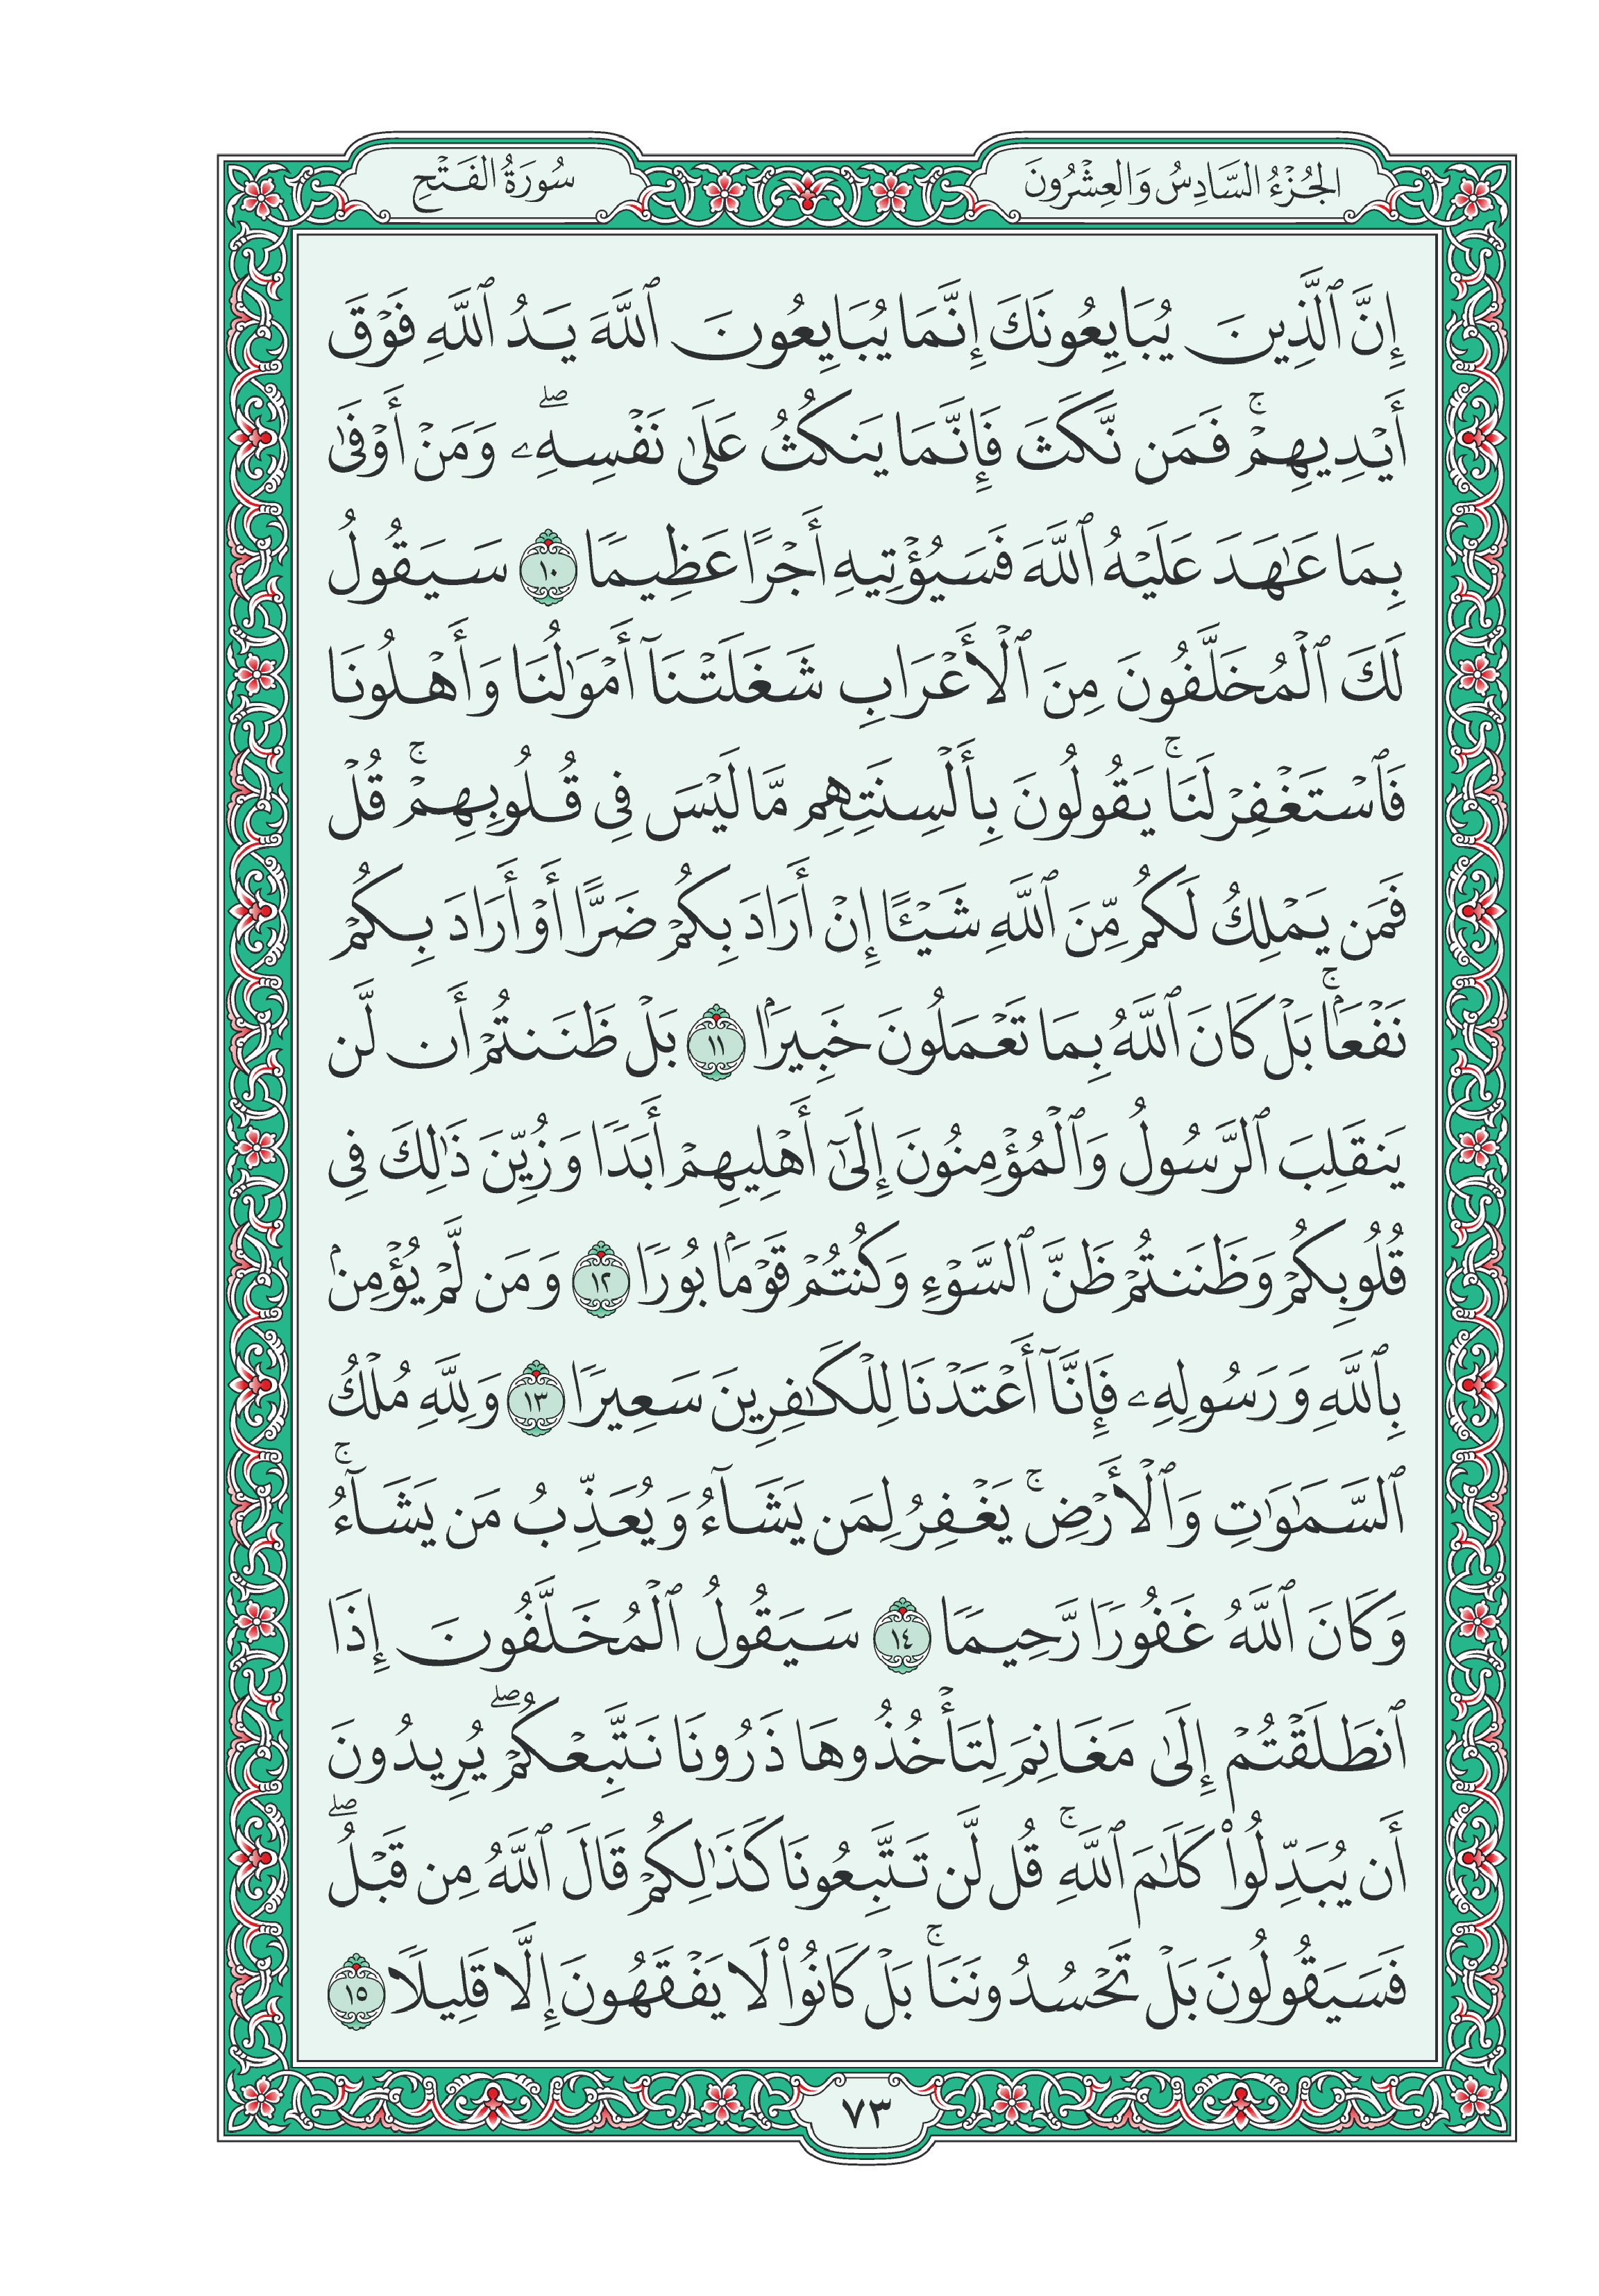 الجُزْءُ السَّادِسُ وَالعِشْرُونَ
سُورَةُ الفَتْحِ
إِنَّ ٱلَّذِينَ يُبَايِعُونَكَ إِنَّمَا يُبَايِعُونَ ٱللَّهَ يَدُ ٱللَّهِ فَوْقَ
أَيْدِيهِمْۚ فَمَن نَّكَثَ فَإِنَّمَا يَنكُثُ عَلَىٰ نَفْسِهِۦۖ وَمَنْ أَوْفَىٰ
بِمَا عَٰهَدَ عَلَيْهُ ٱللَّهَ فَسَيُؤْتِيهِ أَجْرًا عَظِيمًا ١٠ سَيَقُولُ
لَكَ ٱلْمُخَلَّفُونَ مِنَ ٱلْأَعْرَابِ شَغَلَتْنَآ أَمْوَٰلُنَا وَأَهْلُونَا
فَٱسْتَغْفِرْ لَنَاۚ يَقُولُونَ بِأَلْسِنَتِهِم مَّا لَيْسَ فِى قُلُوبِهِمْۚ قُلْ
فَمَن يَمْلِكُ لَكُم مِّنَ ٱللَّهِ شَيْـًٔا إِنْ أَرَادَ بِكُمْ ضَرًّا أَوْ أَرَادَ بِكُمْ
نَفْعَۢاۚ بَلْ كَانَ ٱللَّهُ بِمَا تَعْمَلُونَ خَبِيرَۢا ١١ بَلْ ظَنَنتُمْ أَن لَّن
يَنقَلِبَ ٱلرَّسُولُ وَٱلْمُؤْمِنُونَ إِلَىٰٓ أَهْلِيهِمْ أَبَدًا وَزُيِّنَ ذَٰلِكَ فِى
قُلُوبِكُمْ وَظَنَنتُمْ ظَنَّ ٱلسَّوْءِ وَكُنتُمْ قَوْمَۢا بُورًا ١٢ وَمَن لَّمْ يُؤْمِنۢ
بِٱللَّهِ وَرَسُولِهِۦ فَإِنَّآ أَعْتَدْنَا لِلْكَٰفِرِينَ سَعِيرًا ١٣ وَلِلَّهِ مُلْكُ
ٱلسَّمَٰوَٰتِ وَٱلْأَرْضِۚ يَغْفِرُ لِمَن يَشَآءُ وَيُعَذِّبُ مَن يَشَآءُۚ
وَكَانَ ٱللَّهُ غَفُورًا رَّحِيمًا ١٤ سَيَقُولُ ٱلْمُخَلَّفُونَ إِذَا
ٱنطَلَقْتُمْ إِلَىٰ مَغَانِمَ لِتَأْخُذُوهَا ذَرُونَا نَتَّبِعْكُمْۖ يُرِيدُونَ
أَن يُبَدِّلُوا۟ كَلَٰمَ ٱللَّهِۚ قُل لَّن تَتَّبِعُونَا كَذَٰلِكُمْ قَالَ ٱللَّهُ مِن قَبْلُۖ
فَسَيَقُولُونَ بَلْ تَحْسُدُونَنَاۚ بَلْ كَانُوا۟ لَا يَفْقَهُونَ إِلَّا قَلِيلًا ١٥
٧٣